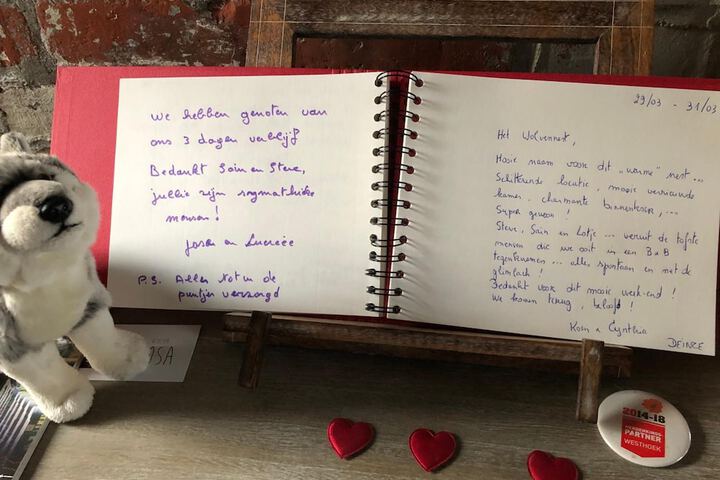 We hebben genoten van
ons 3 dagen verblijf
Bedankt Sain en Steve,
jullie zijn
mensen!
P.S. Alles tot in de
puntjes verzorgd
29/03 - 31/03
Het Wolvennest,
Mooie naam voor dit "warme" nest...
Schitterende locatie, mooie verwarmde
kamer, charmante binnenkoer,...
Super gewoon!
Steve, Sain en Lotje... veruit de tofste
mensen die we ooit in een B&B
tegenkwamen... alles spontaan en met de
glimlach!
Bedankt voor dit mooie week-end!
We komen terug, beloofd!
Koen & Cynthia
DEINZE
2014-18
PARTNER
WESTHOEK